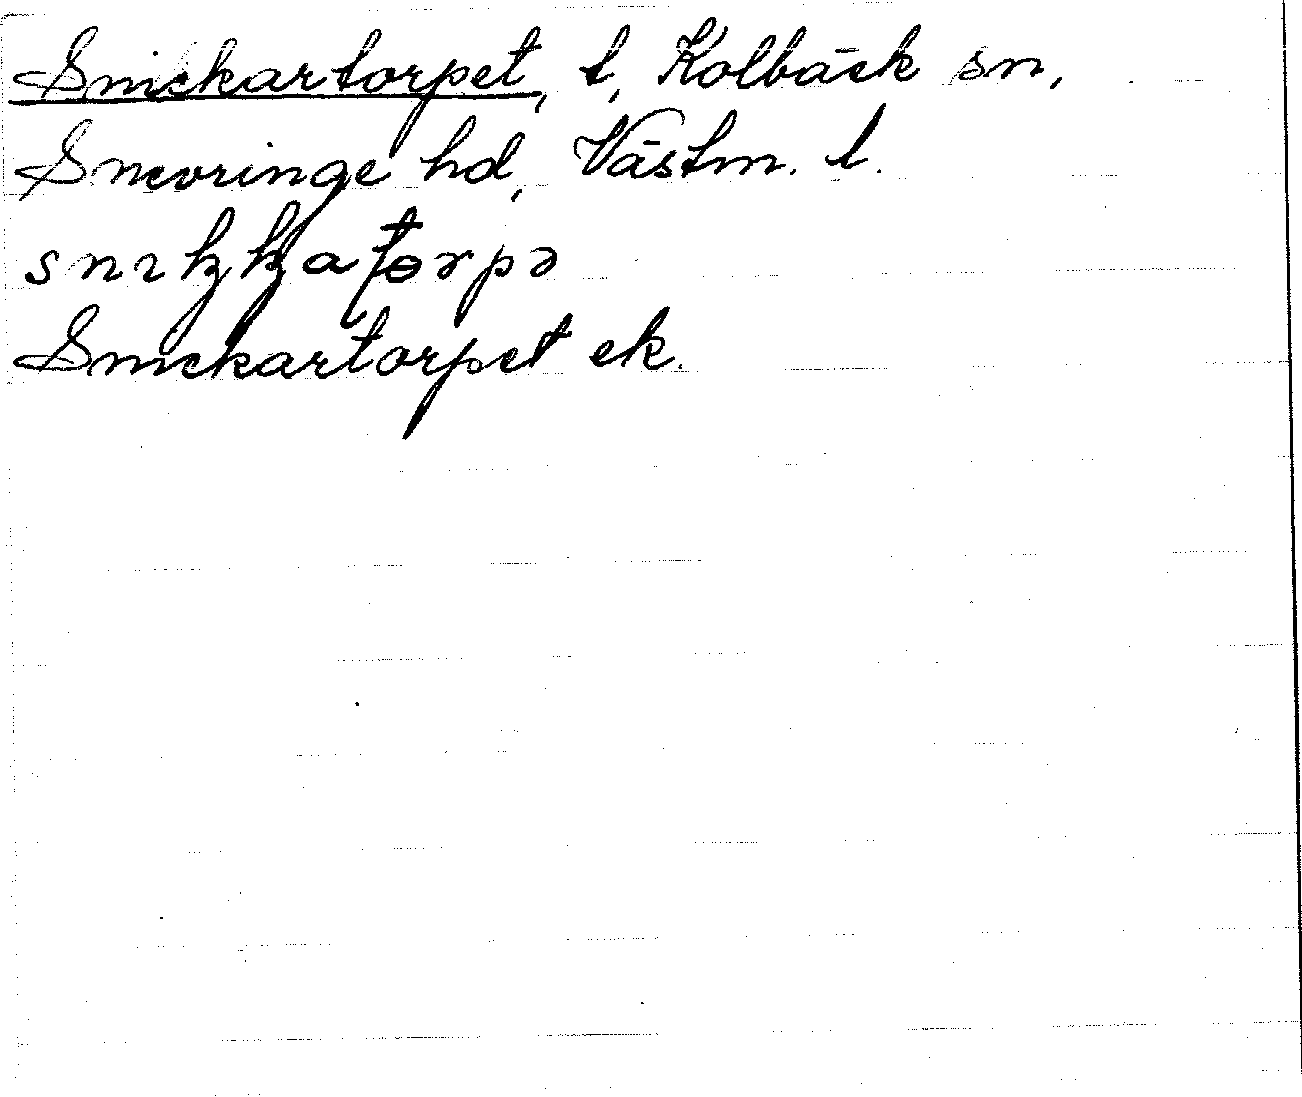 Snickartorpet, t, Kolbäck sn,
Snevringe hd, Västm. l.
snɩkkaʈɵrpə
Snickartorpet ek.